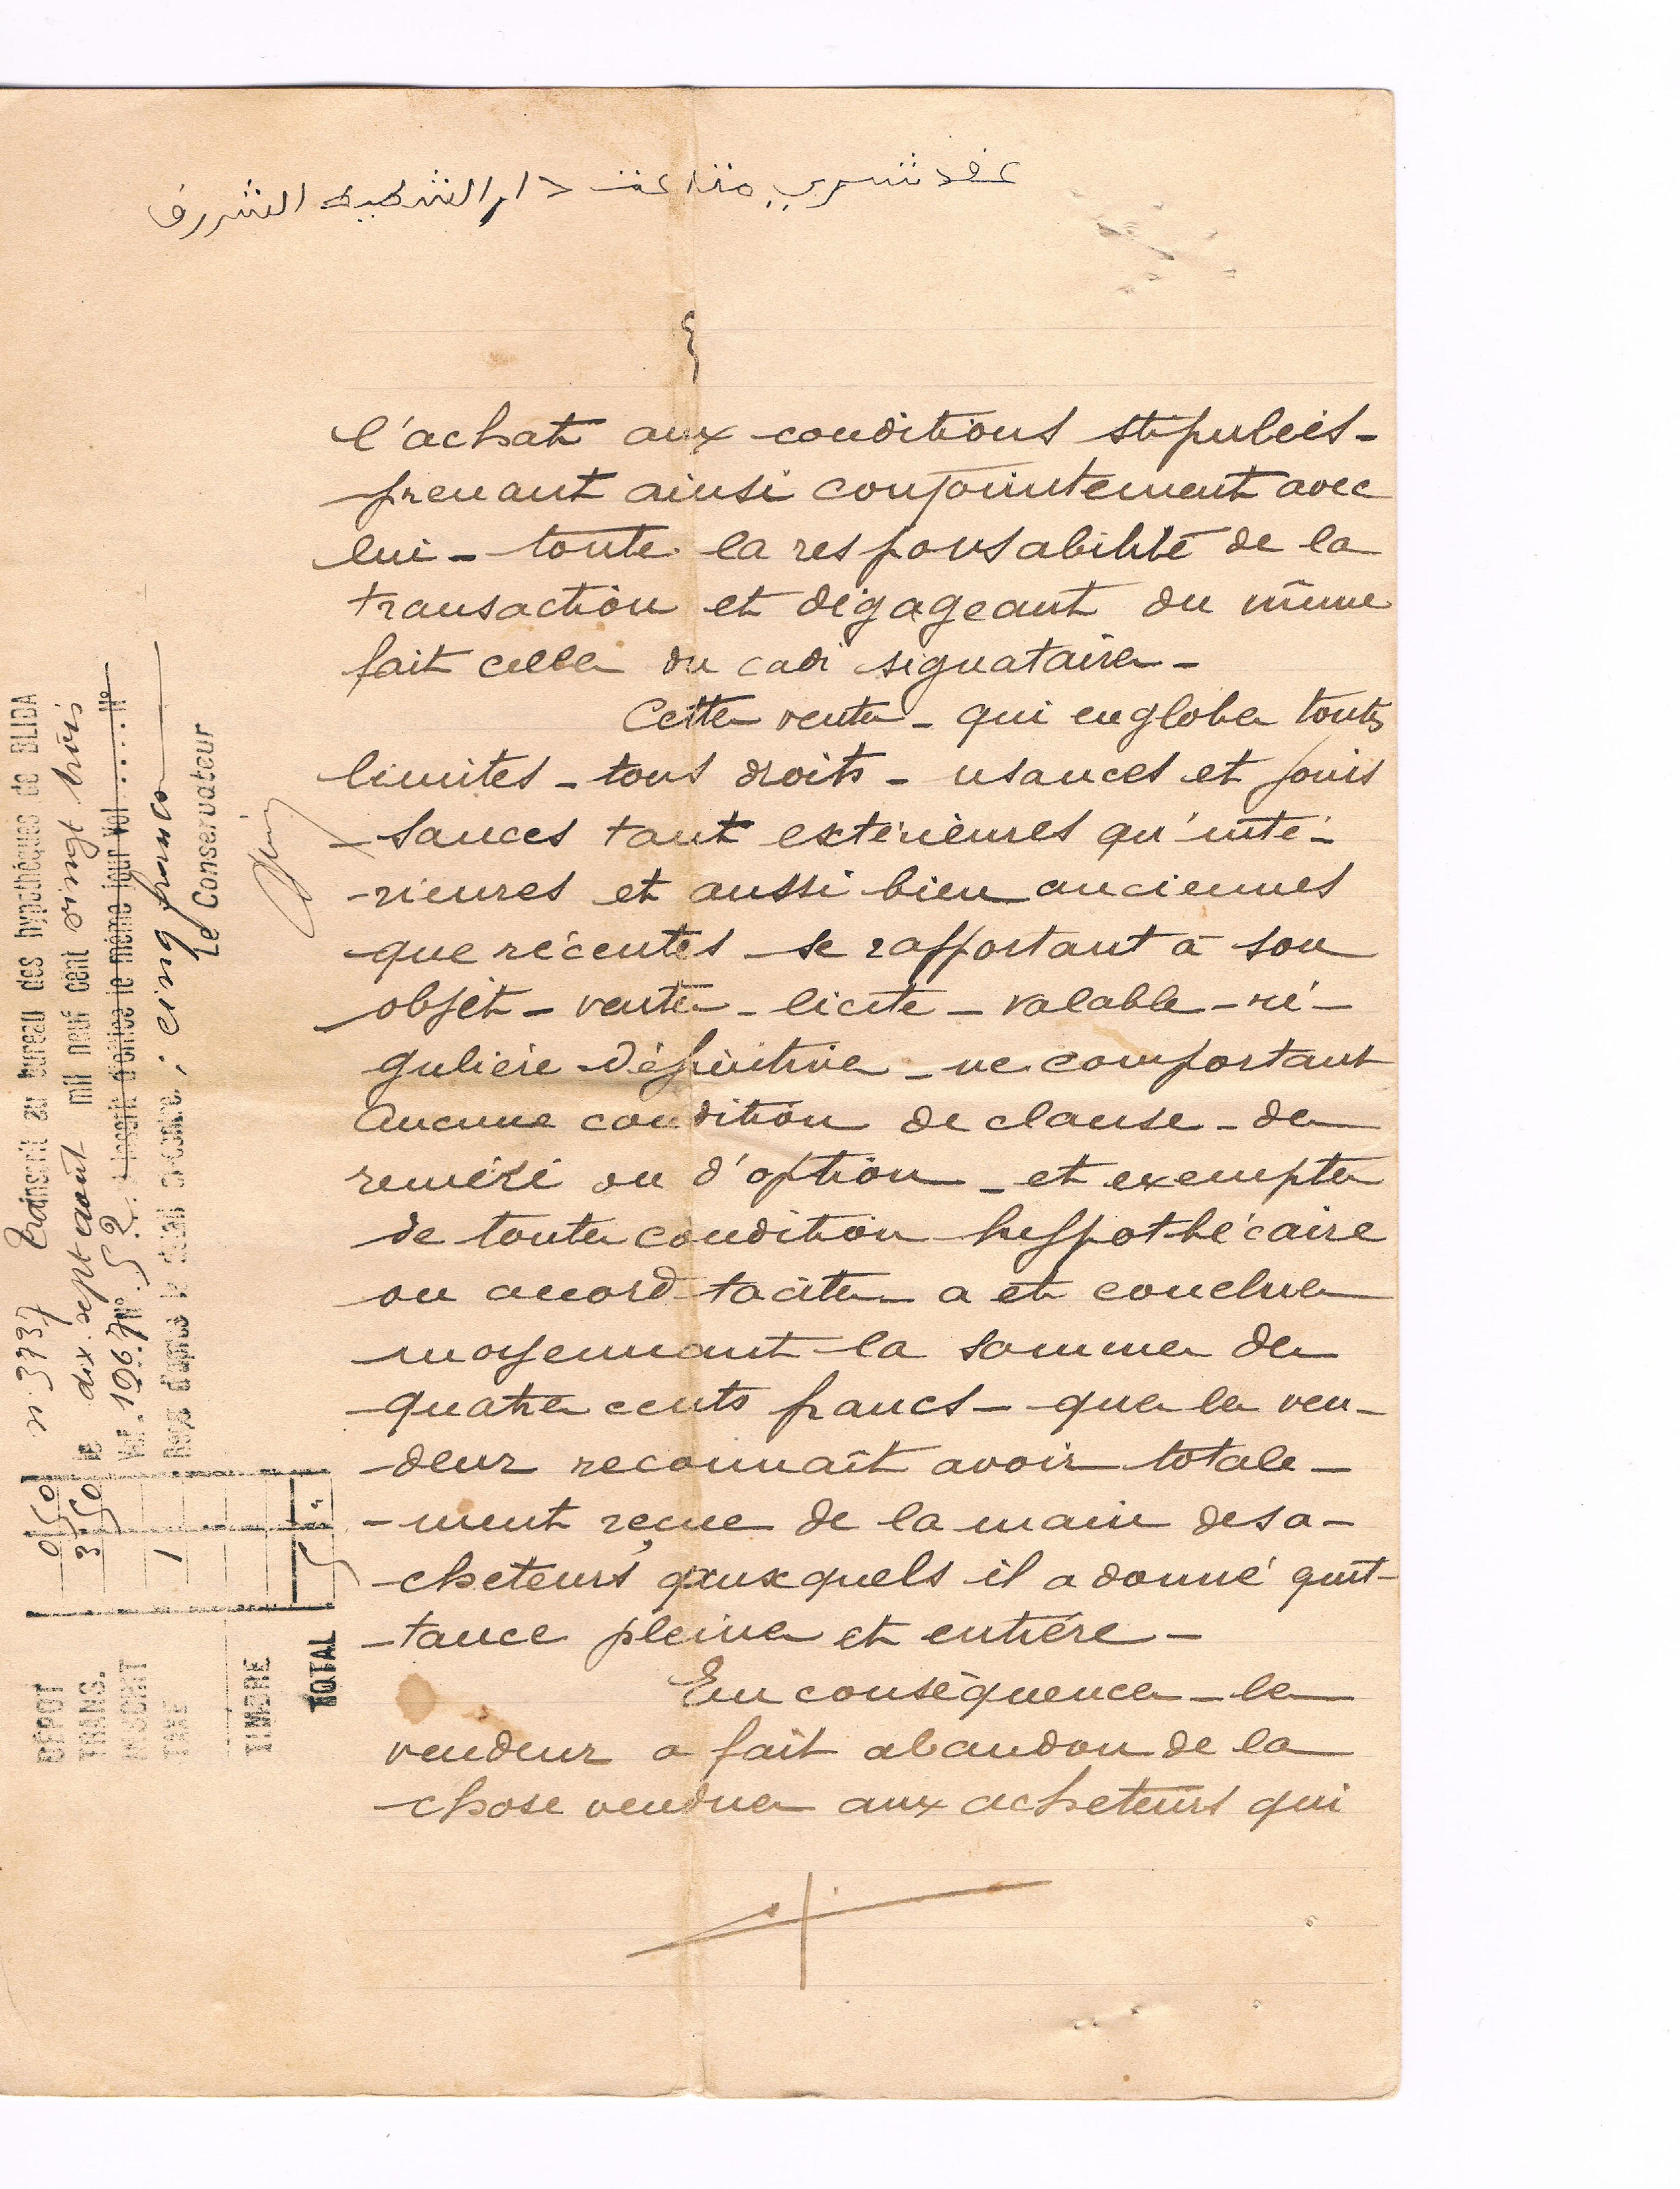 عقد شري متاعت دار الشطيبة الشررف
l'achat aux conditions stipuleés-
prenant ainsi conjointement avec
lui - toute la responsabilité de la
transaction et dégageant du même
fait celle du cadi signataire -
Cette vente - qui englobe touts
limites - tous droits - usances et jouis
- sances tant extérieures qu'inté-
- rieures et aussi bien anciennes
que récentes se rapportant à son
objet - vente - licite - valable - ré-
gulière - définitive - ne comportant
aucune condition de clause - de
réméré ou d'option - et exempte
de toute condition hypothécaire
ou accord tacite - a été conclue
moyennant la somme de
quatre cents francs - que le ven-
- deur reconnaît avoir totale-
- ment reçue de la main des a-
- cheteurs auxquels il a donné quit-
- tance pleine et entière -
En conséquence - le
vendeur a fait abandon de la
chose vendue aux acheteurs qui
n: 3737 Transcrit au bureau des hypothèques de BLIDA
le dix sept août mil neuf cent vingt trois
Vol. 1967 N° 52 inscrit d'office le même jour Vol ..... N°
Reçu d'après le détail ci-contre : cinq francs
Le Conservateur
DÉPOT 0 50
TRANS. 3 50
INSCRIT
TAXE 1
TIMBRE
TOTAL 5 "